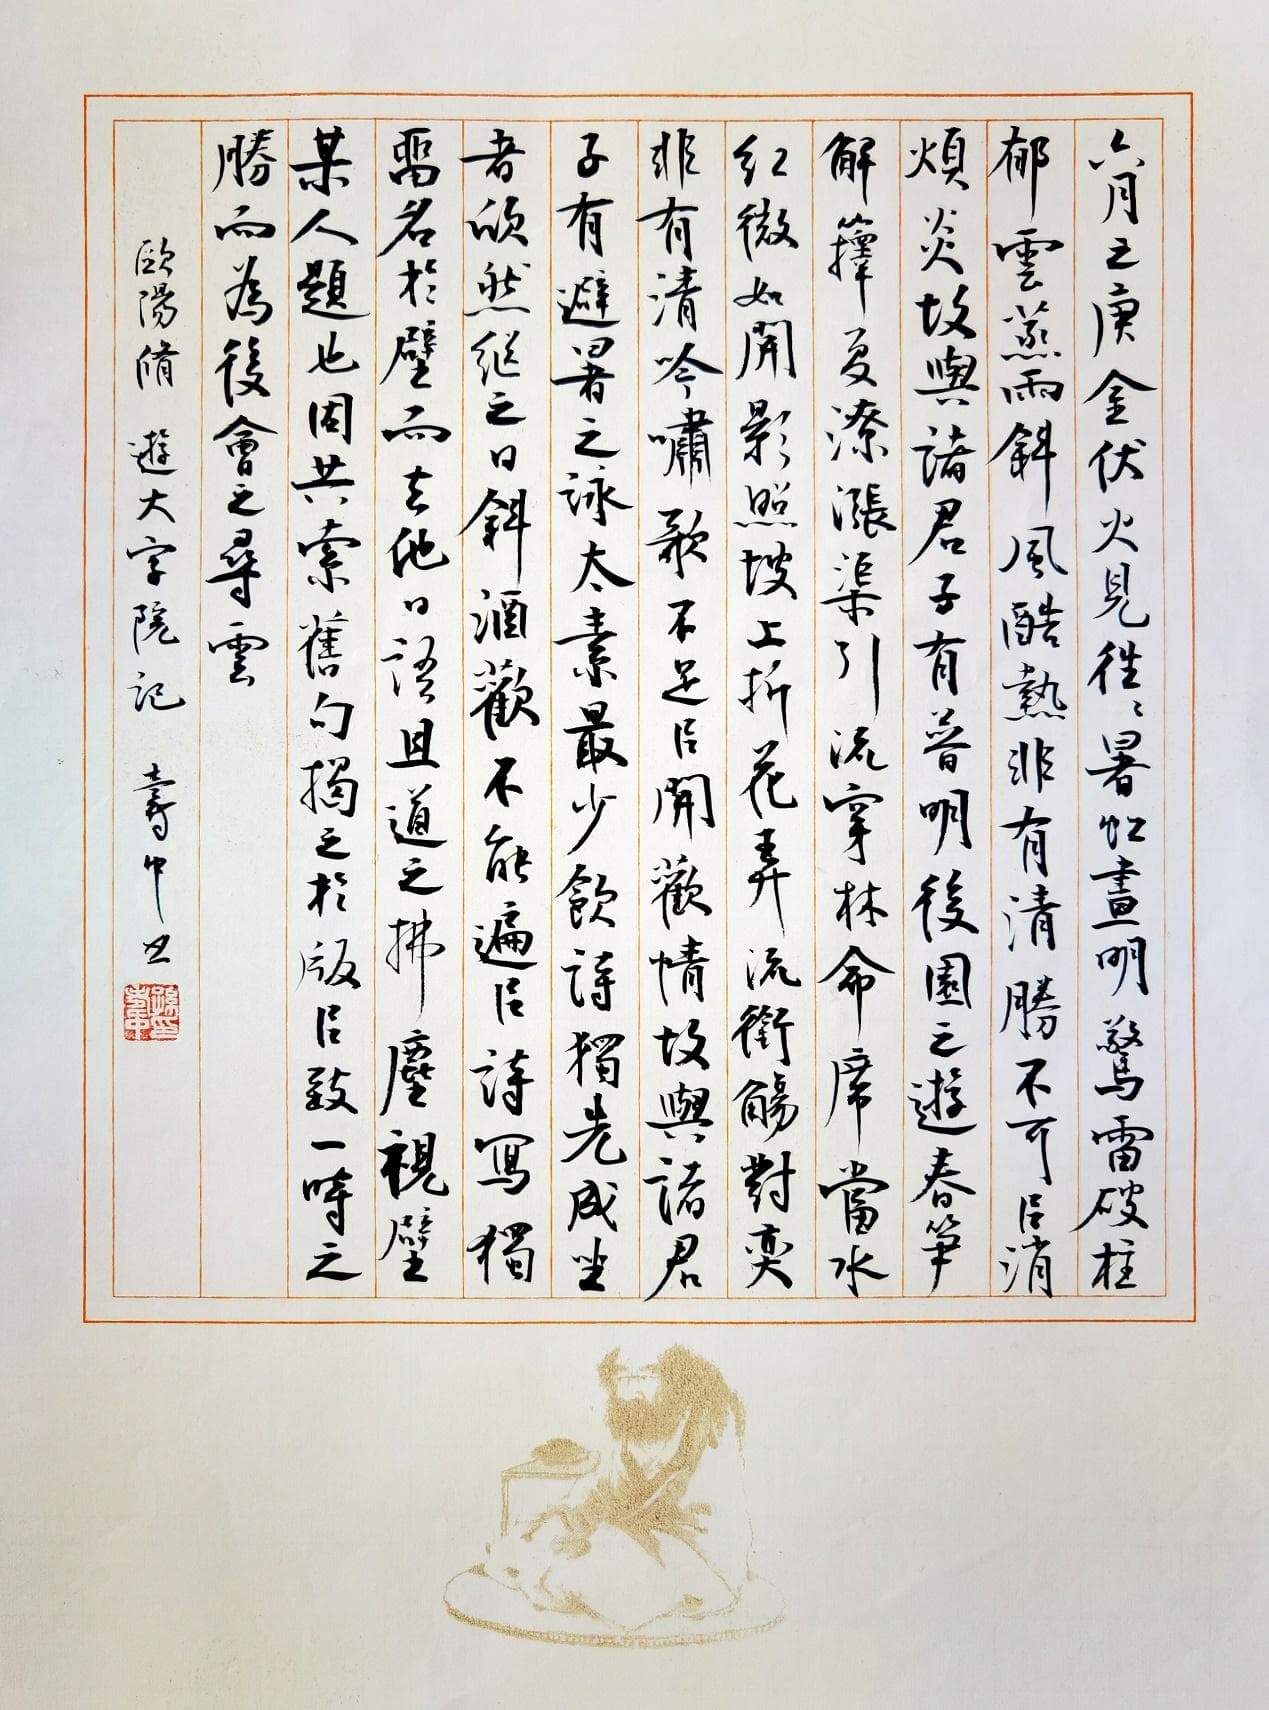 六月之庚金伏火見往〻暑虹晝明驚雷破柱
郁雲蒸雨斜風酷熱非有清勝不可㠯消
煩炎故與諸君子有普明後園之遊春筍
解籜夏潦漲渠引流穿林命席當水
紅薇始開影照波上折花弄流銜觴對奕
非有清吟嘯歌不足㠯開歡情故與諸君
子有避暑之詠太素最少飲詩獨先成坐
者欣然繼之日斜酒歡不能遍㠯詩寫獨
留名於壁而去他日語且道之拂塵視壁
某人題也因共索舊句揭之於版㠯致一時之
勝而為後會之尋雲
歐陽脩 遊大字院記 壽中書